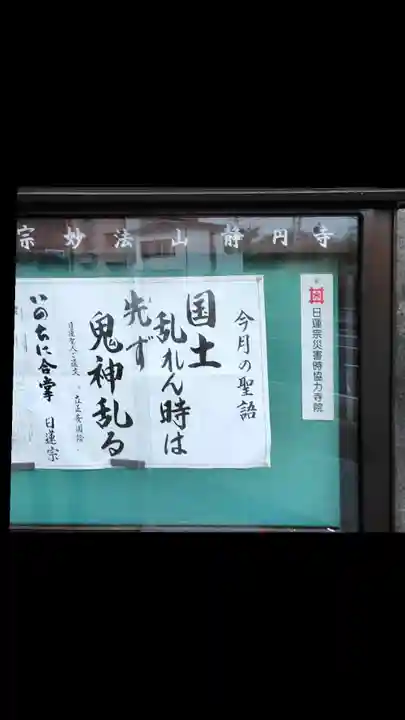 宗妙法山静円寺
今月の聖語
国土
乱れん時は
先ず
鬼神乱る
日蓮聖人ご遺文
立正安国論
いのちに合掌 日蓮宗
日蓮宗災害時協力寺院